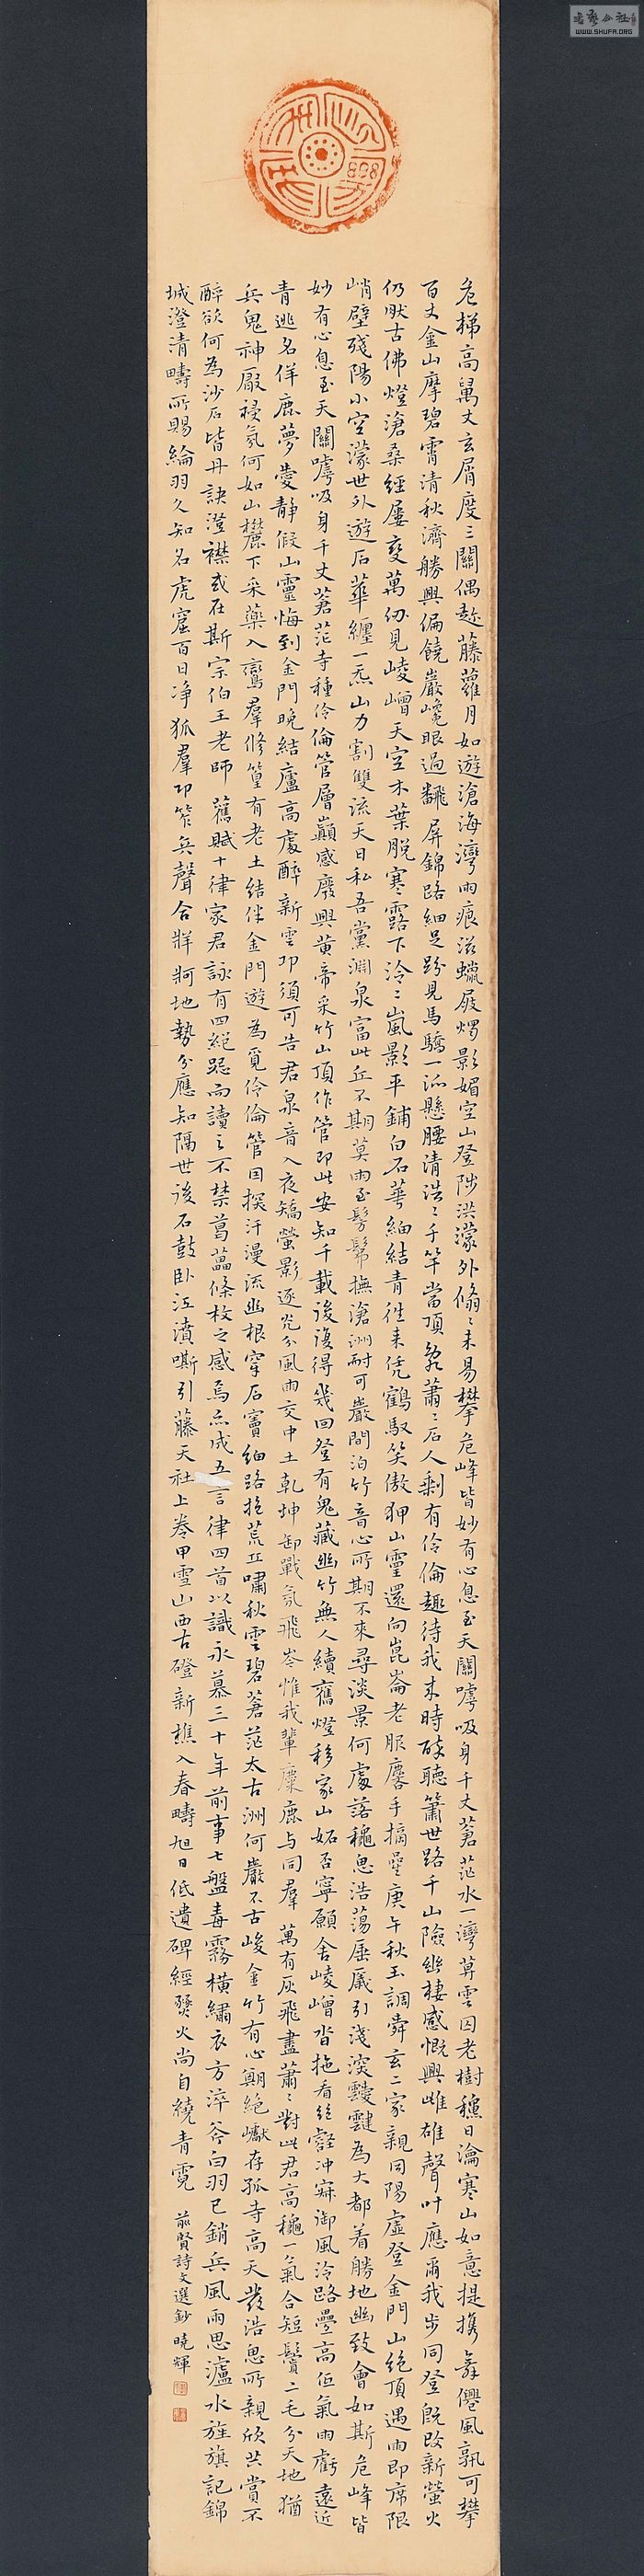 危梯高萬丈玄屑度三關偶趁藤蘿月如遊滄海灣雨痕滋蠟屐燭影媚空山登陟洪濛外翛〻未易攀危峰皆妙有心息至天關噓吸身千丈蒼茫水一灣算雲因老樹穩日瀹寒山如意提攜舞僊風孰可攀
百丈金山摩碧霄清秋濟勝興偏饒巖巉眼過翻屏錦路細足趻見馬驕一派懸腰清浩〻千竿當頂蕭〻后人剩有伶倫趣待我來時醉聽簫世路千山險幽棲感慨興雌雄聲叶應爾我步同登既改新螢火
仍默古佛燈滄桑經屢變萬仞見崚嶒天空木葉脫寒露下泠〻嵐影平鋪白石華細結青往來凭鶴馭笑傲狎山靈還向崑崙老服麐手摘星庚午秋玉調舜玄二家親同陽虛登金門山絕頂遇雨即席限
峭壁殘陽小空濛世外遊石華纏一炁山力割雙流天日私吾黨淵泉富此丘不期莫雨至髣髴撫滄洲耐可巖間泊竹音心所期不來尋淡景何處落穐思浩蕩屋厜引淺深靉靆為大都着勝地幽致會如斯危峰皆
妙有心息至天關噓吸身千丈蒼茫寺種伶倫管層巔感廢興黃帝采竹山頂作管即此安知千載後復得幾回登有鬼藏幽竹無人續舊燈移家山妬否寧願舍崚嶒沓拖看絕壑沖寐御風泠路疊高低氣雨虧遠近
青逃名佯鹿夢愛靜假山靈悔到金門晚結廬高處醉新雲叩須可告君泉音入夜矯螢影逐光分風雨交中土乾坤卸戰氛飛岑惟我輩麋鹿与同羣萬有灰飛盡蕭〻對此君高穐一氣合短鬢二毛分天地猶
兵鬼神厭祲氛何如山麓下采藥入鸞羣修篁有老土結伴金門遊為覓伶倫管因探汗漫流幽根穿石竇細路挖荒丘嘯秋雲碧蒼茫太古洲何巖不古峻金竹有心期絕巘存孤寺高天發浩思所親欣共賞不
醉欲何為沙石皆丹訣澄襟或在斯宗伯王老師舊賦十律家君詠有四絕跽而讀之不禁葛藟條枚之感焉亦成五言律四首以識永慕三十年前事七盤毒霧橫繡衣方淬斧白羽已銷兵風雨思瀘水旌旗記錦
城澄清疇所賜綸羽久知名虎窟百日净狐羣卭笮兵聲含牂牁地勢分應知隔世後石鼓卧江濆嘶引藤天社上拳甲雪山西古磴新樵入春疇旭日低遺碑經燹火尚自繞青霓
前賢詩文選鈔曉輝
書艺公社
WWW.SHUFA.ORG